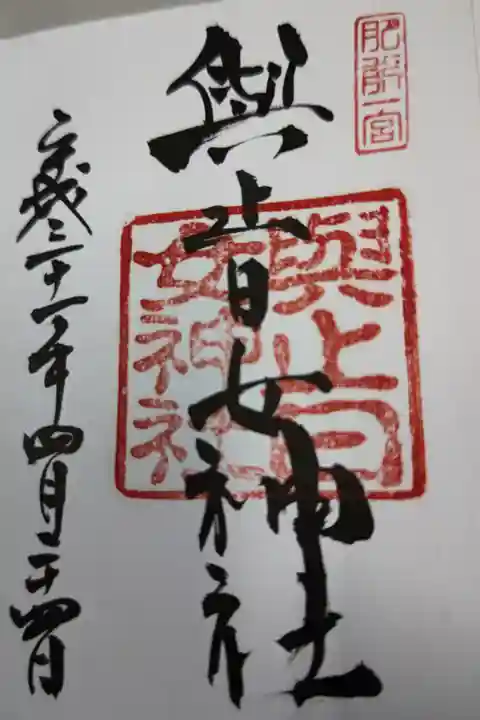 肥前一宮
與止日女神社
與止日女神社
平成三十一年四月二十四日